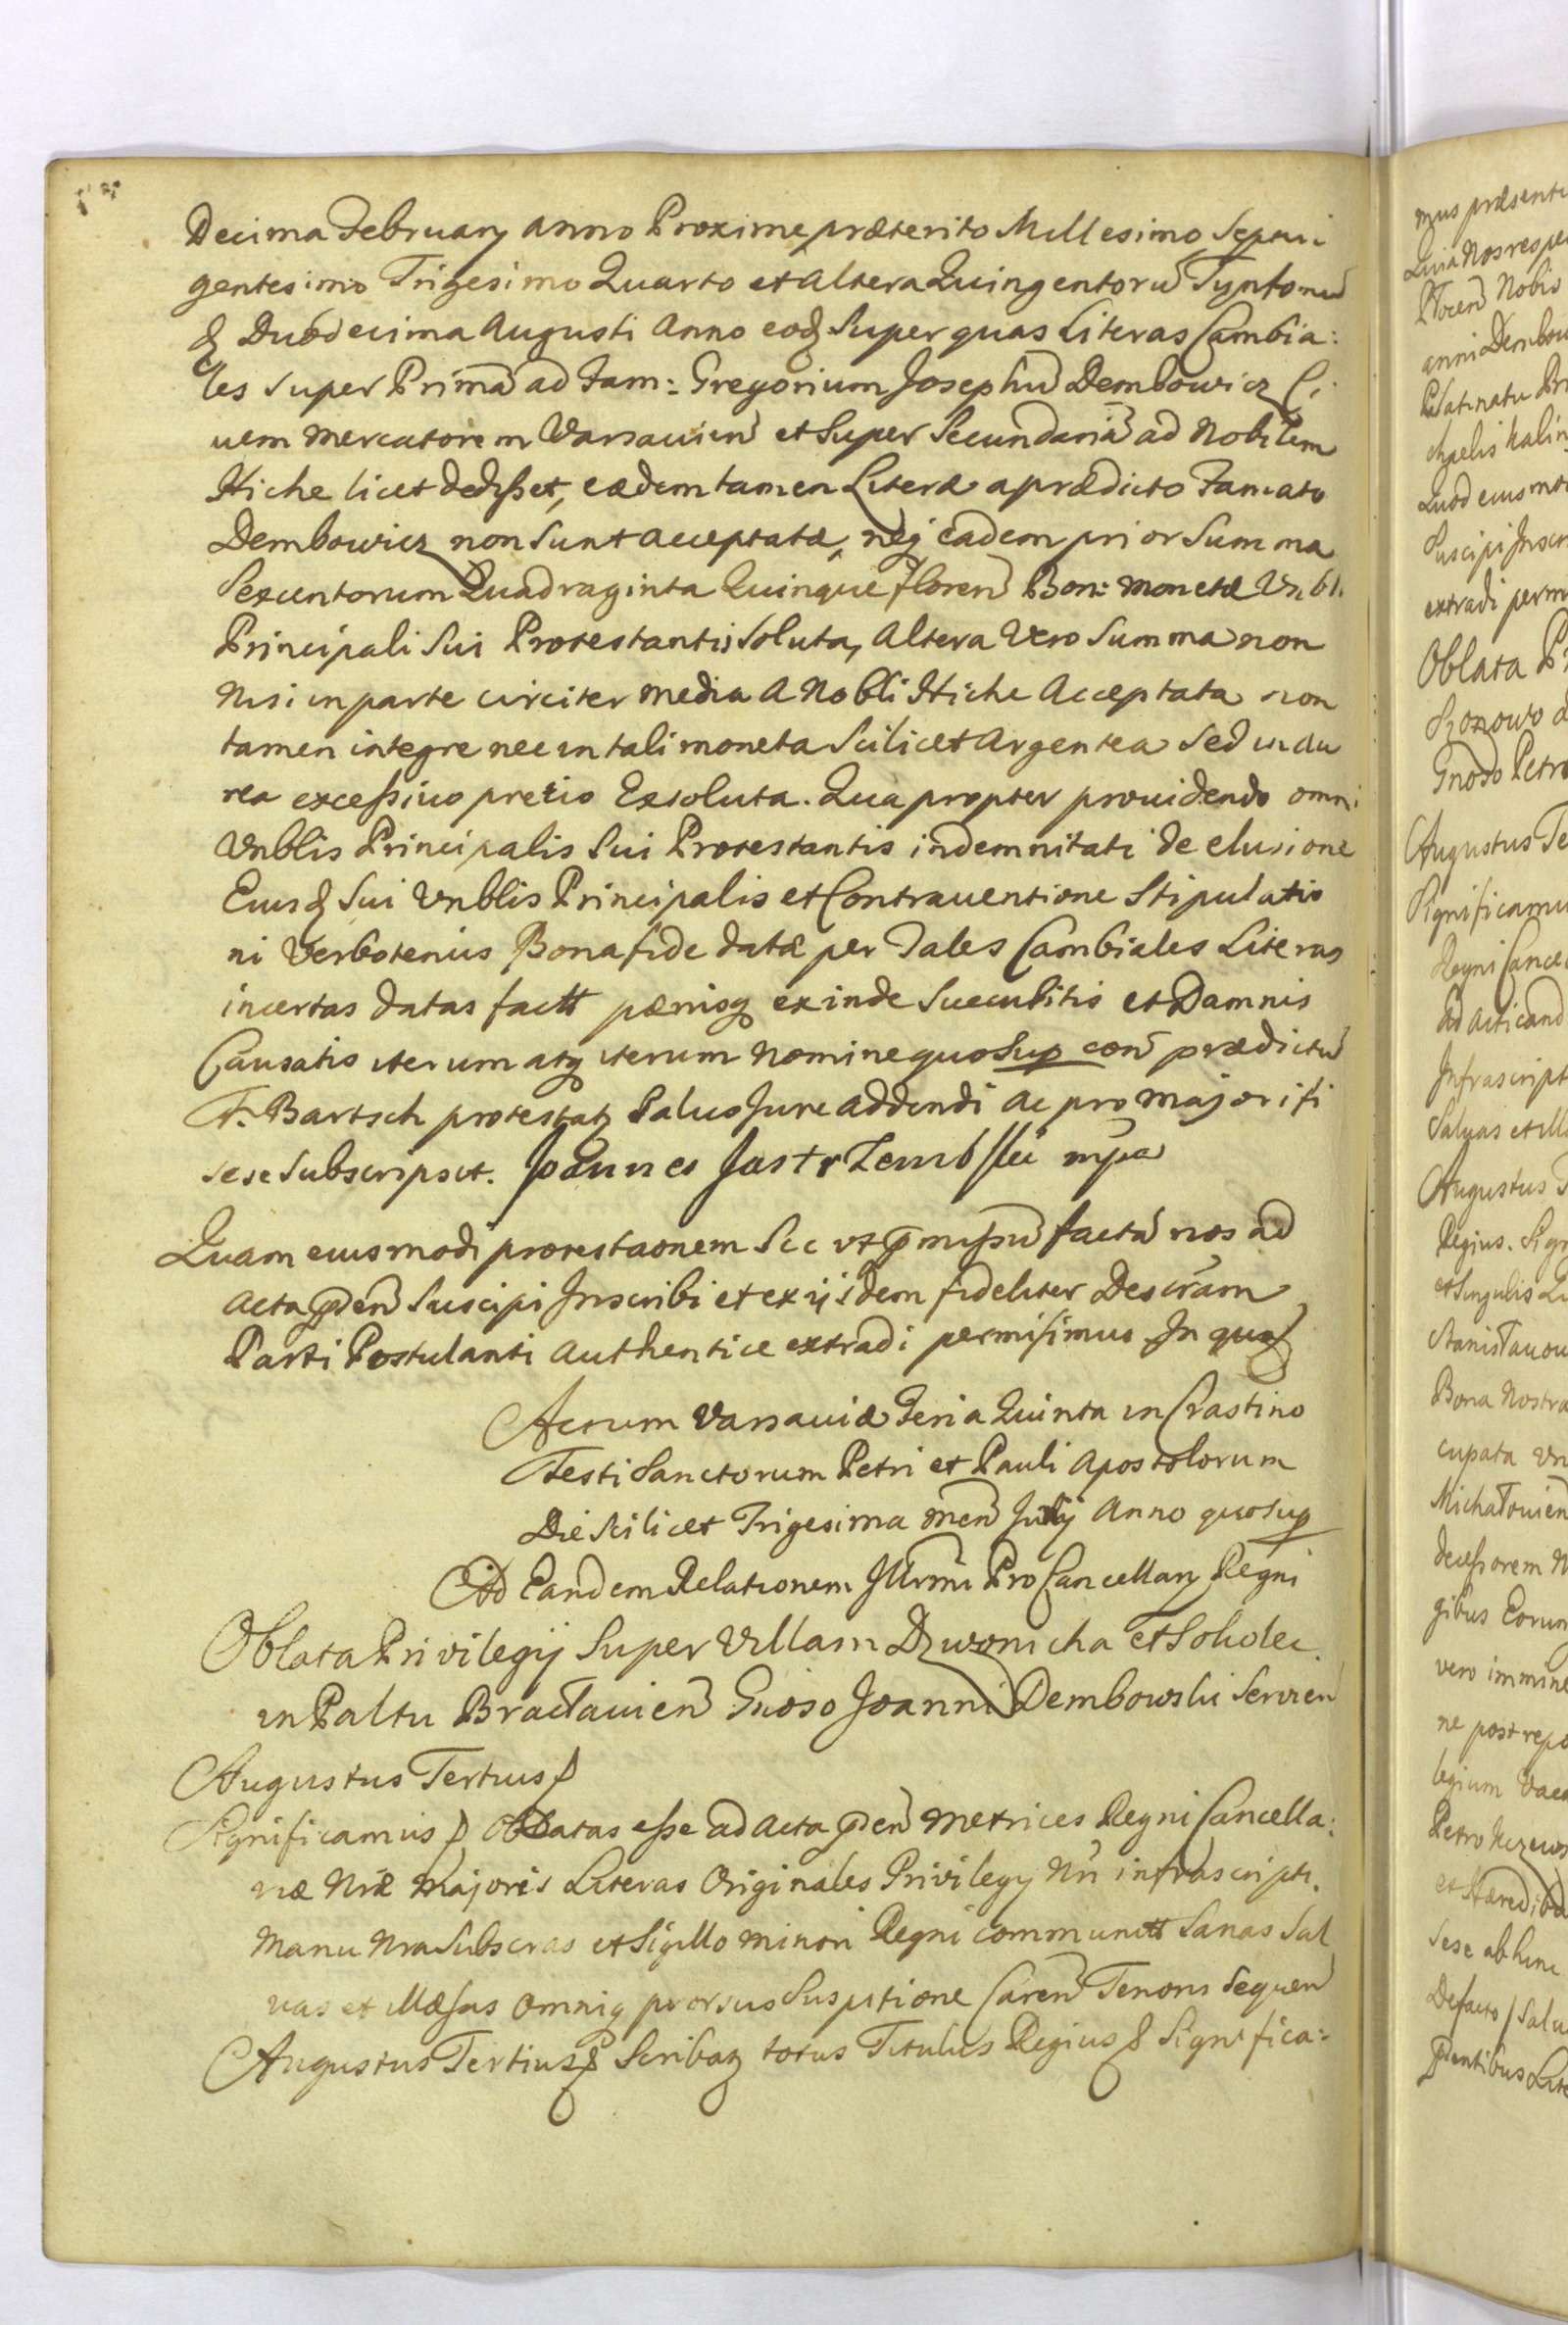 Decima February Anno Proxime præterito Millesimo Septin
gentesimo Trigesimo Quarto et altera Quingentorū Tynfonū
& Duodecima Augusti Anno eodē Super quas Literas Cambia:
les super Primā ad Fam: Gregorium Josephū Dembowicz Ci
uem Mercatorem Varsavien et Super Secundariā ad Nobilem
Hiche licet dedisset, eædem tamen Literæ a prædicto Famato
Dembowicz non Sunt acceptatæ, neqz eadem prior Summa
Sexcentorum Quadraginta Quinque floren Bon: monetæ Vnbl.
Principali Sui Protestantis Soluta, Altera Vero Summa non
nisi in parte circiter media a Nobli Hiche Acceptata non
tamen integre nec in tali moneta Scilicet Argentea Sed in au
rea excessivo pretio Exsoluta. Quapropter providendo omni
Vnblis Principalis Sui Protestantis indemnitati de elusione
Eiusdē Sui Vnblis Principalis et Contraventione Stipulatio
ni Verbotenus Bona fide datæ per Tales Cambiales Literas
incertas datas factt pænisqz exinde Succubitis et Damnis
Causatis iterum atqz iterum Nomine quo Sup con prædictū
F. Bartsch protestatz Salvo Jure addendi ac pro majori fi
de se Subscripsit. Joannes Jastrzembski mpa
Quam eiusmodi protestaonem Sic vt præmissū factā nos ad
Acta pnden Suscipi Inscribi et ex ijsdem fideliter Descrām
Parti Postulanti Authentice extradi permisimus In quoz
Actum Varsaviæ Feria Quinta in Crastino
Festi Sanctorum Petri et Pauli Apostolorum
Die Scilicet Trigesima Men Junij Anno quo Sup
Ad Eandem Relationem Jllrmi Pro Cancellary Regni
Oblata Privilegij Super Villam Dzwonicha et Soludec.
in Paltu Braclavien Gnoso Joanni Dembowski Servien
Augustus Tertius &
Significamus & Oblatas esse ad Acta pnden Metrices Regni Cancella:
riæ Nræ Majoris Literas Originales Privilegy Nri infrascripti.
Manu Nra Subscras et Sigillo minori Regni communitt Sanas Sal
vas et illæsas Omniqz prorsus Suspitione Caren Tenoris Sequen
Augustus Tertius & Scribatz totus Titulus Regius & Significa:
mus præsenti
Quia Nos respe
anni Dembow
Palatinatu Br
chaelis Kalin
Quod eiusmo
Suscipi Inscr
extradi perm
Oblata P
Gnoso Petro
Augustus Te
Significamu
Regni Cance
Ad Acticand
Infrascript
Salvas et ill
Augustus T
Regius. Sign
et Singulis Li
Stanislauow
Bona Nostra
cupata vn
Michałowien
decessorem N
gibus Eorum
vero immine
ne post repo
legium Vaca
et Hæredibu
sese ab hinc
Defacto / Salu
pndentibus Lite